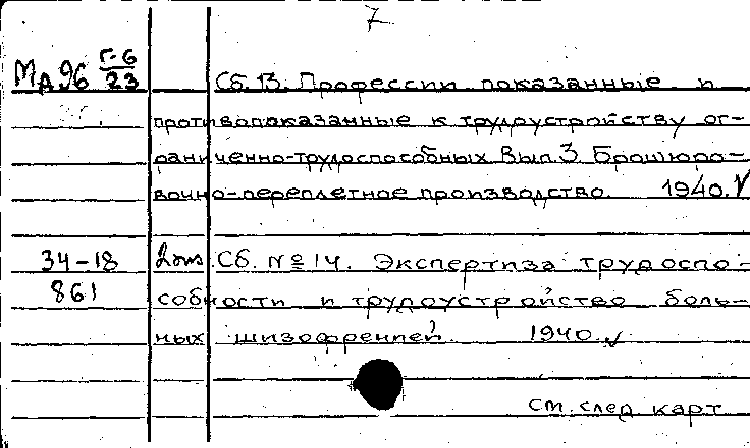 7
МД96 Г-6/23 Сб. 13. Профессии показанные и
противопоказанные к трудоустройству ог-
раниченно-трудоспособных Вып. 3 Брошюро-
вочно-переплетное производство. 1940. V
34-18 Сб. № 14. Экспертиза трудоспо-
861 собности и трудоустройство боль-
ных шизофренией. 1940. V
См. след. карт